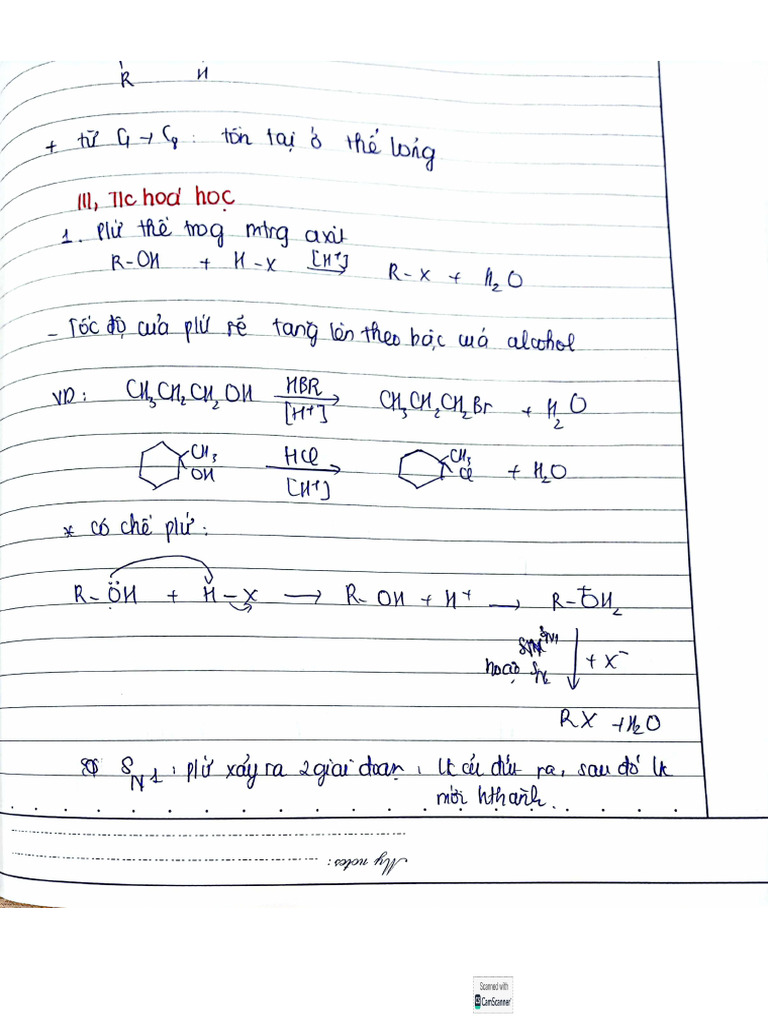 R H
+ từ C1 → C8 : tồn tại ở thể lỏng
III, T/c hoá học
1. Pứ thế trog mtrg axit
R-OH + H-X [H+] → R-X + H2O
- Tốc độ của pứ sẽ tăng lên theo bậc của alcohol
VD: CH3CH2CH2OH HBR [H+] → CH3CH2CH2Br + H2O
CH3 OH HCl [H+] → CH3 Cl + H2O
* Cơ chế pứ:
R-ÖH + H-X → R-OH + H+ → R-OH2+
SN1
hoặc SN2 + X-
RX + H2O
SN1: pứ xảy ra 2 giai đoạn, lk cũ đứt ra, sau đó lk
mới hthành.
My notes:
Scanned with
CS CamScanner